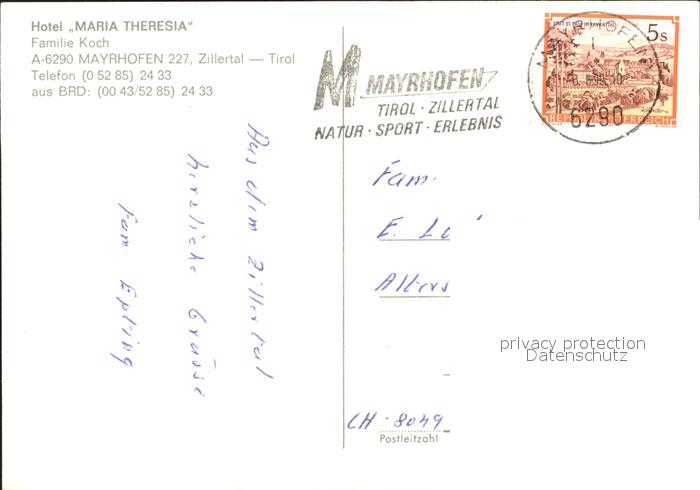 Hotel „MARIA THERESIA“
Familie Koch
A-6290 MAYRHOFEN 227, Zillertal — Tirol
Telefon (0 52 85) 24 33
aus BRD: (00 43/52 85) 24 33
M MAYRHOFEN
TIROL · ZILLERTAL
NATUR · SPORT · ERLEBNIS
MAYRHOFEN
6290
5s
REPUBLIK ÖSTERREICH
Aus dem Zillertal
herzliche Grüsse
Fam. Epting
Fam.
E.
privacy protection
Datenschutz
CH-8049
Postleitzahl